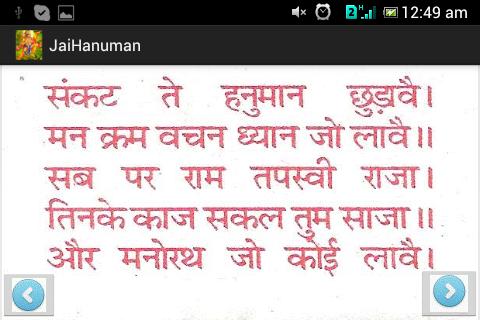 12:49 am
JaiHanuman
संकट ते हनुमान छुड़ावै।
मन क्रम वचन ध्यान जो लावै॥
सब पर राम तपस्वी राजा।
तिनके काज सकल तुम साजा॥
और मनोरथ जो कोई लावै।